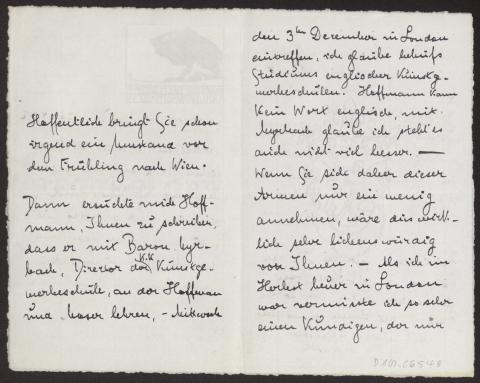 Hoffentlich bringt Sie schon
irgend ein Umstand vor
dem Frühling nach Wien.
Dann ersuchte mich Hoff-
mann, Ihnen zu schreiben,
dass er mit Baron Myr-
bach, Director der k.k. Kunstge-
werbeschule, an der Hoffmann
und Moser lehren, – Mittwoch
den 3ten Dezember in London
eintreffen, ich glaube behufs
Studiums englischer Kunstge-
werbeschulen. Hoffmann kann
kein Wort englisch, mit
Myrbach glaube ich steht es
auch nicht viel besser. —
Wenn Sie sich daher dieser
Armen nur ein wenig
annehmen, wäre dies wirk-
lich sehr liebenswürdig
von Ihnen. – Als ich im
Herbst heuer in London
war vermisste ich so sehr
einen Kundigen, der mir